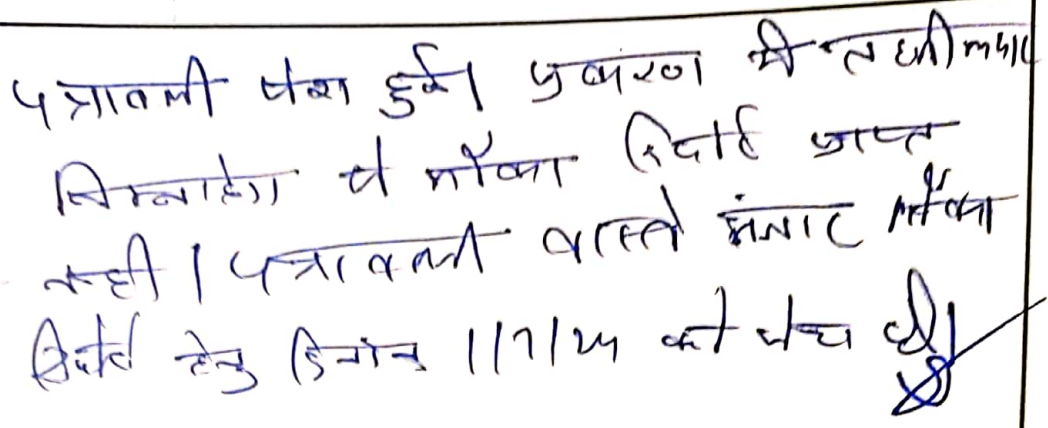 पत्रावली पेश हुई। प्रकरण में तहसीलदार
निम्बाहेडा से मौका रिपोर्ट प्राप्त
नही। पत्रावली वास्ते इंतजार मौका
रिपोर्ट हेतु दिनांक 1/7/24 को पेश हो।